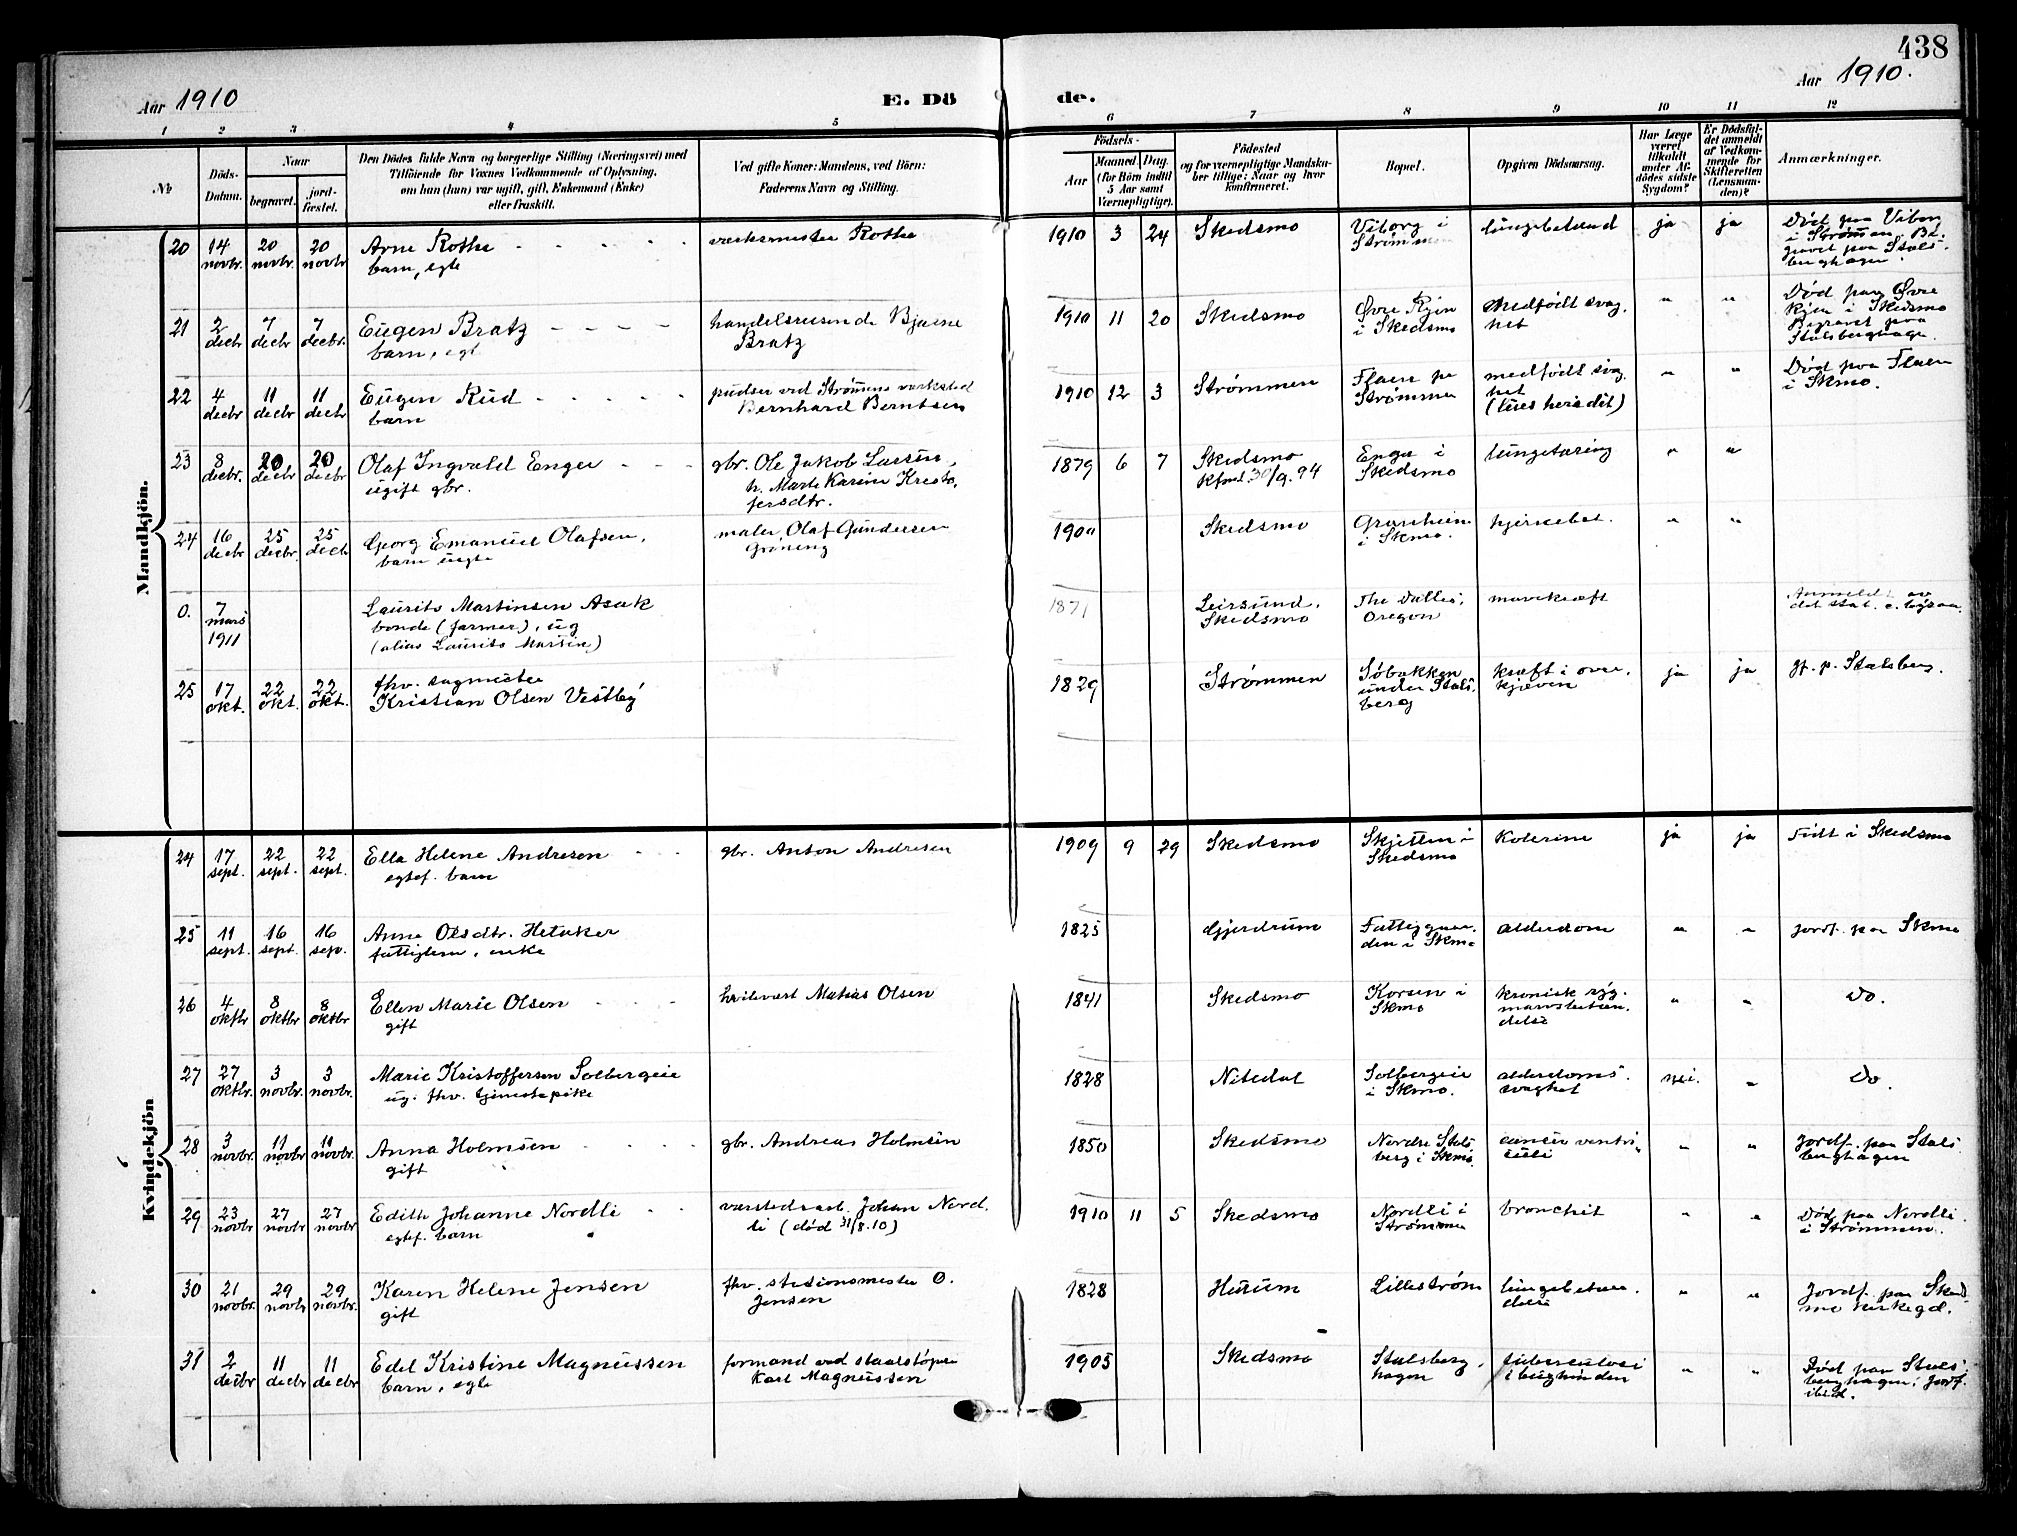 438
Aar 1910
E. Dö
de.
Aar 1910.
1 2 3 4 5 6 7 8 9 10 11 12
No
Döds-Datum.
Naar
begravet.
jord-fæstet.
Den Dödes fulde Navn og borgerlige Stilling (Næringsvei) med
Tilföiende for Voxnes Vedkommende af Oplysning,
om han (hun) var ugift, gift, Enkemand (Enke)
eller fraskilt.
Ved gifte Koner: Mandens, ved Börn:
Faderens Navn og Stilling.
Födsels-
Aar
Maaned. Dag.
(for Börn indtil
5 Aar samt
Værnepligtige).
Födested
og for værnepligtige Mandska-
ber tillige: Naar og hvor
konfirmeret.
Bopæl.
Opgiven Dödsaarsag.
Har Læge
været
tilkaldt
under Af-
dödes sidste
Sygdom?
Er Dödsfal-
det anmeldt
af Vedkom-
mende for
Skifteretten
(Lensman-
den)?
Anmærkninger.
Mandkjön.
20 14 novbr. 20 novbr. 20 novbr. Arne Rothe
barn, egte
værksmester Rothe
1910 3 24 Skedsmo
Viborg i
Strømmen
lungebetænd
ja ja
Død paa Viborg
i Strømmen. Be-
gravet paa Stals-
berghagen.
21 2 decbr 7 decbr 7 decbr. Eugen Bratz
barn, egt
handelsreisende Bjarne
Bratz
1910 11 20 Skedsmo
Øvre Ryen
i Skedsmo
medfødt svag
het
" "
Død paa Øvre
Ryen i Skedsmo
Begravet paa
Stalsberghage.
22 4 decbr 11 decbr 11 decbr Eugen Rud
barn
pudser ved Strømmens værksted
Bernhard Berntsen
1910 12 3 Strømmen
Flaen pr
Strømmen
medfødt svag
het
" "
Død paa Flaen
i Skmo.
23 8 decbr. 20 decbr 20 decbr Olaf Ingvald Enger
ugift gbr.
gbr. Ole Jakob Larsen,
h. Marte Karine Kristo-
fersdtr.
1879 6 7 Skedsmo
Kfmd 30/9. 94
Enger i
Skedsmo
lungetæring
" "
24 16 decbr 25 decbr. 25 decb Georg Emanuel Olafsen,
barn uegte
maler Olaf Gundersen
Grøning
1900 Skedsmo
Granheim
i Skmo.
hjernebet.
" "
0. 7 mars 1911 Laurits Martinsen Asak
bonde (farmer), ug
(alias Laurits Martin)
1871 Leirsund,
Skedsmo
The Dalles,
Oregon
mavekræft
Anmeldt av
det stat. c. byraa.
25 17 okt. 22 okt. 22 okt. fhv. sagmester
Kristian Olsen Vestby
1829 Strømmen
Søbakken
under Stals-
berg
kræft i over-
kjæven
ja ja
jf. p. Stalsberg.
Kvindekjön
24 17 sept. 22 sept. 22 sept. Ella Helene Andresen
egtef. barn
gbr. Anton Andresen
1909 9 29 Skedsmo
Skjetten i
Skedsmo
Kolerine
ja ja
Født i Skedsmo
25 11 sept. 16 sept. 16 sep. Anna Olsdtr. Hetaker
fattiglem, enke
1825 Gjerdrum
Fattiggaar-
den i Skmo
alderdom
" "
Jordf. paa Skmo
26 4 oktbr 8 oktbr 8 oktbr Ellen Marie Olsen
gift
hvilevært Matias Olsen
1841 Skedsmo
Korsen i
Skmo
kronisk ryg-
marvsbetæn-
delse
" "
Do.
27 27 oktbr. 3 novbr. 3 novbr. Marie Kristoffersen Solbergeie
ug. fhv. tjenestepike
1828 Nitedal
Solbergeie
i Skmo.
alderdoms-
svaghet
nei. "
Do.
28 3 novbr. 11 novbr 11 novbr. Anna Holmsen
gift
gbr. Andreas Holmsen
1850 Skedsmo
Nordre Stals
berg i Skmo
cancer ventri-
culi
" "
Jordf. paa Stals
berghagen
29 23 novbr 27 novbr 27 novbr Edith Johanne Nordli
egtef. barn
værstedsarb. Johan Nord-
li (død 31/8.10)
1910 11 5 Skedsmo
Nordli i
Strømmen
bronchit
" "
Død paa Nordli
i Strømmen.
30 21 novbr. 29 novbr 29 novbr. Karen Helene Jensen
gift
fhv. stasionsmester O.
Jensen
1828 Hurum
Lillestrøm
lungebetæn-
delse
" "
Jordf. paa Skeds
mo kirkegd.
31 2 decbr 11 decbr 11 decbr Edel Kristine Magnussen
barn, egte
formand ved staalstøperi
Karl Magnussen
1905 Skedsmo
Stalsberg-
hagen
tuberculose
i bughinden
" "
Død paa Stals-
berghagen; Jordf.
ibid.